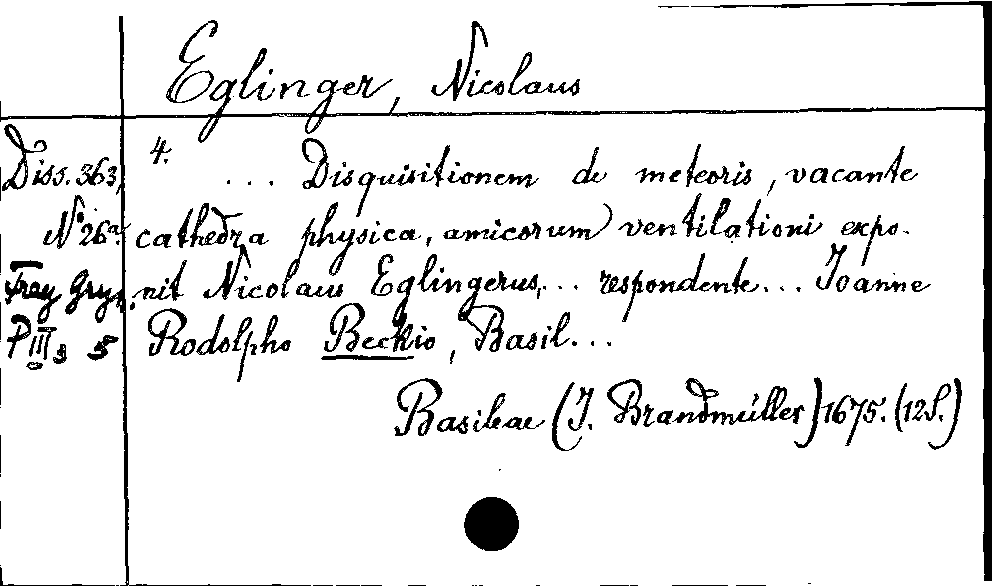 Eglinger, Nicolaus
Diss. 363, 4. ... Disquisitionem de meteoris, vacante
No 26a. cathedra physica, amicorum ventilationi expo-
Frey Gryn. nit Nicolaus Eglingerus,... respondente... Joanne
P III 3 5 Rodolpho Beckio, Basil...
Basileae (J. Brandmüller) 1675. (12S.)